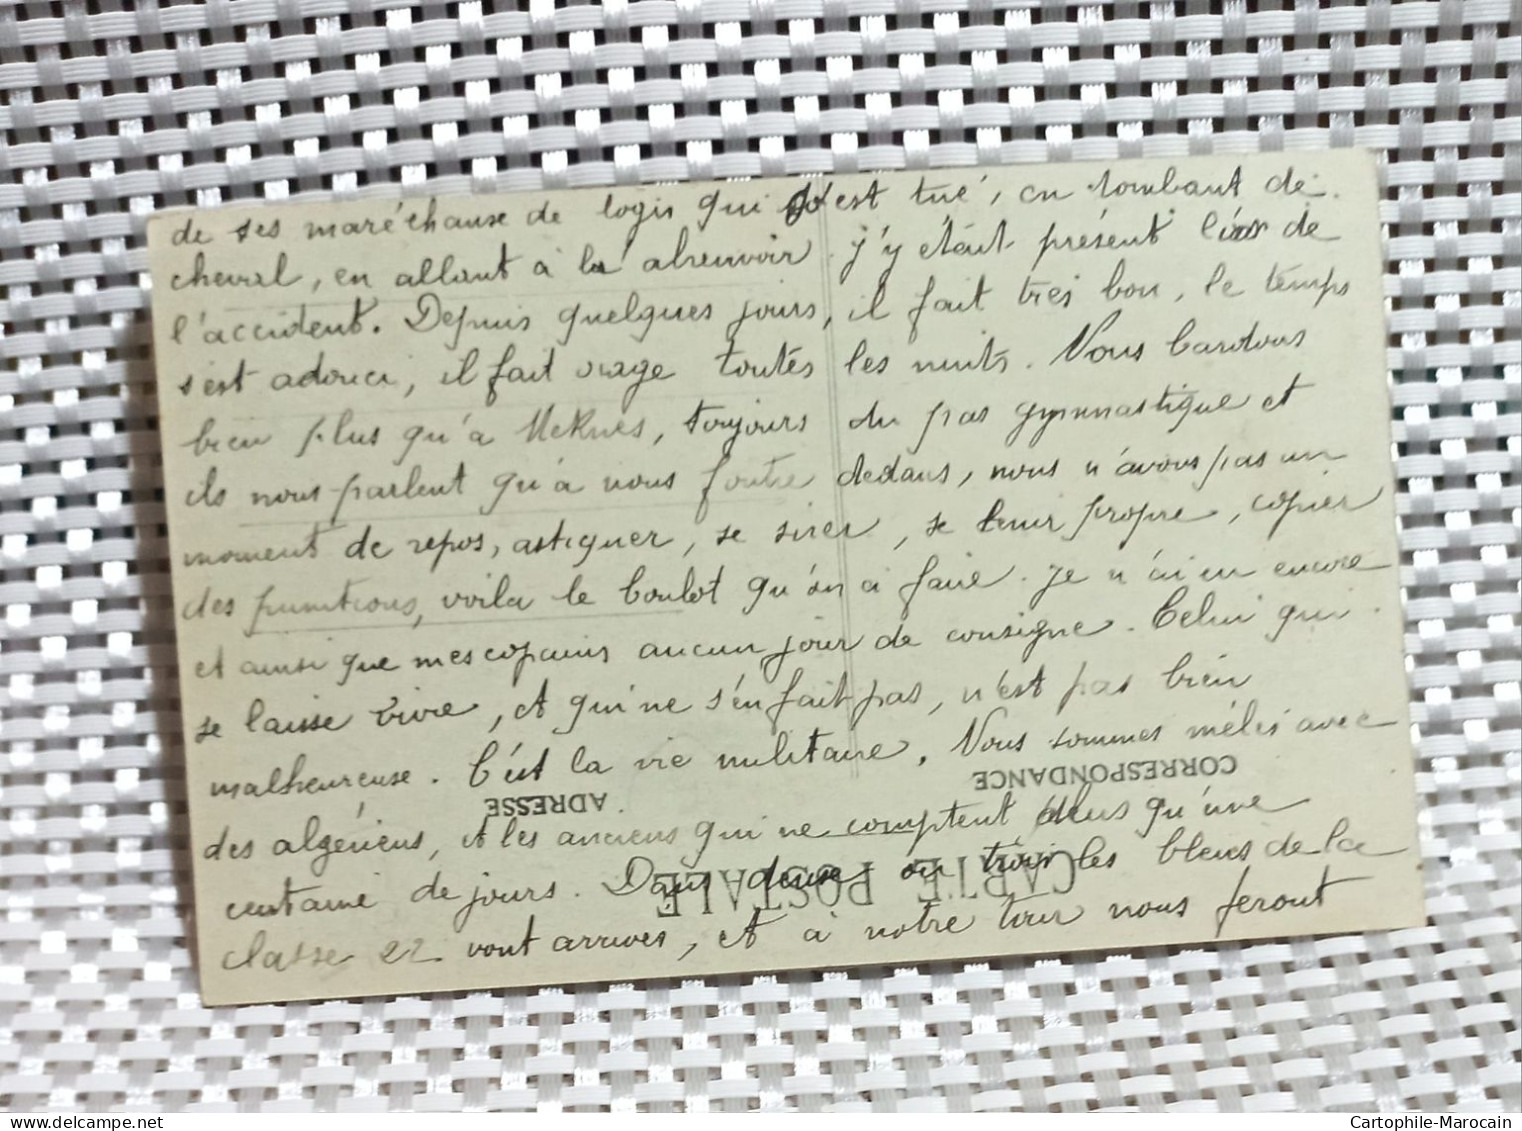 de ses maréchause de logis qui s'est tué, en tombant de
cheval, en allant à la abreuvoir. j'y étaut présent lors de
l'accident. Depuis quelques jours, il fait très bon, le temps
s'est adouci, il fait orage toutés les nuits. Nous bardous
bien plus qu'à Meknes, toujours du pas gymnastique et
ils nous parlent qu'à nous foutre dedans, nous n'avons pas un
moment de repos, astiquer, se sirer, se tenir propre, copier
des punitions, voila le boulot qu'on a faire. Je n'ai eu encore
et ainsi que mes copains aucun jour de consigne. Celui qui
se laisse vivre, et qui ne s'en fait pas, n'est pas bien
malheureuse. C'est la vie militaire. Nous sommes mélés avec
des algériens, et les anciens qui ne comptent plus qu'une
centaine de jours. Dans deux ou trois les bleus de la
classe 22 vont arrives, et à notre tour nous feront
CARTE POSTALE
CORRESPONDANCE
ADRESSE
Cartophile-Marocain
delcampe.net